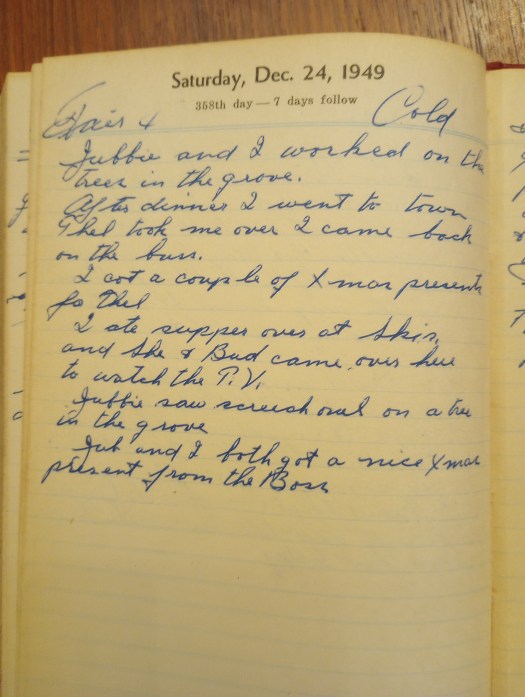 Saturday, Dec. 24, 1949
358th day — 7 days follow
Fair & Cold
Jubbie and I worked on the
trees in the grove.
After dinner I went to town
Thel took me over I came back
on the buss.
I got a couple of Xmas presents
fo Thel
I ate supper over at Skis,
and She & Bud came over here
to watch the T.V.
Jubbie saw screech owl on a tree
in the grove
Jub and I both got a nice Xmas
present from the Boss